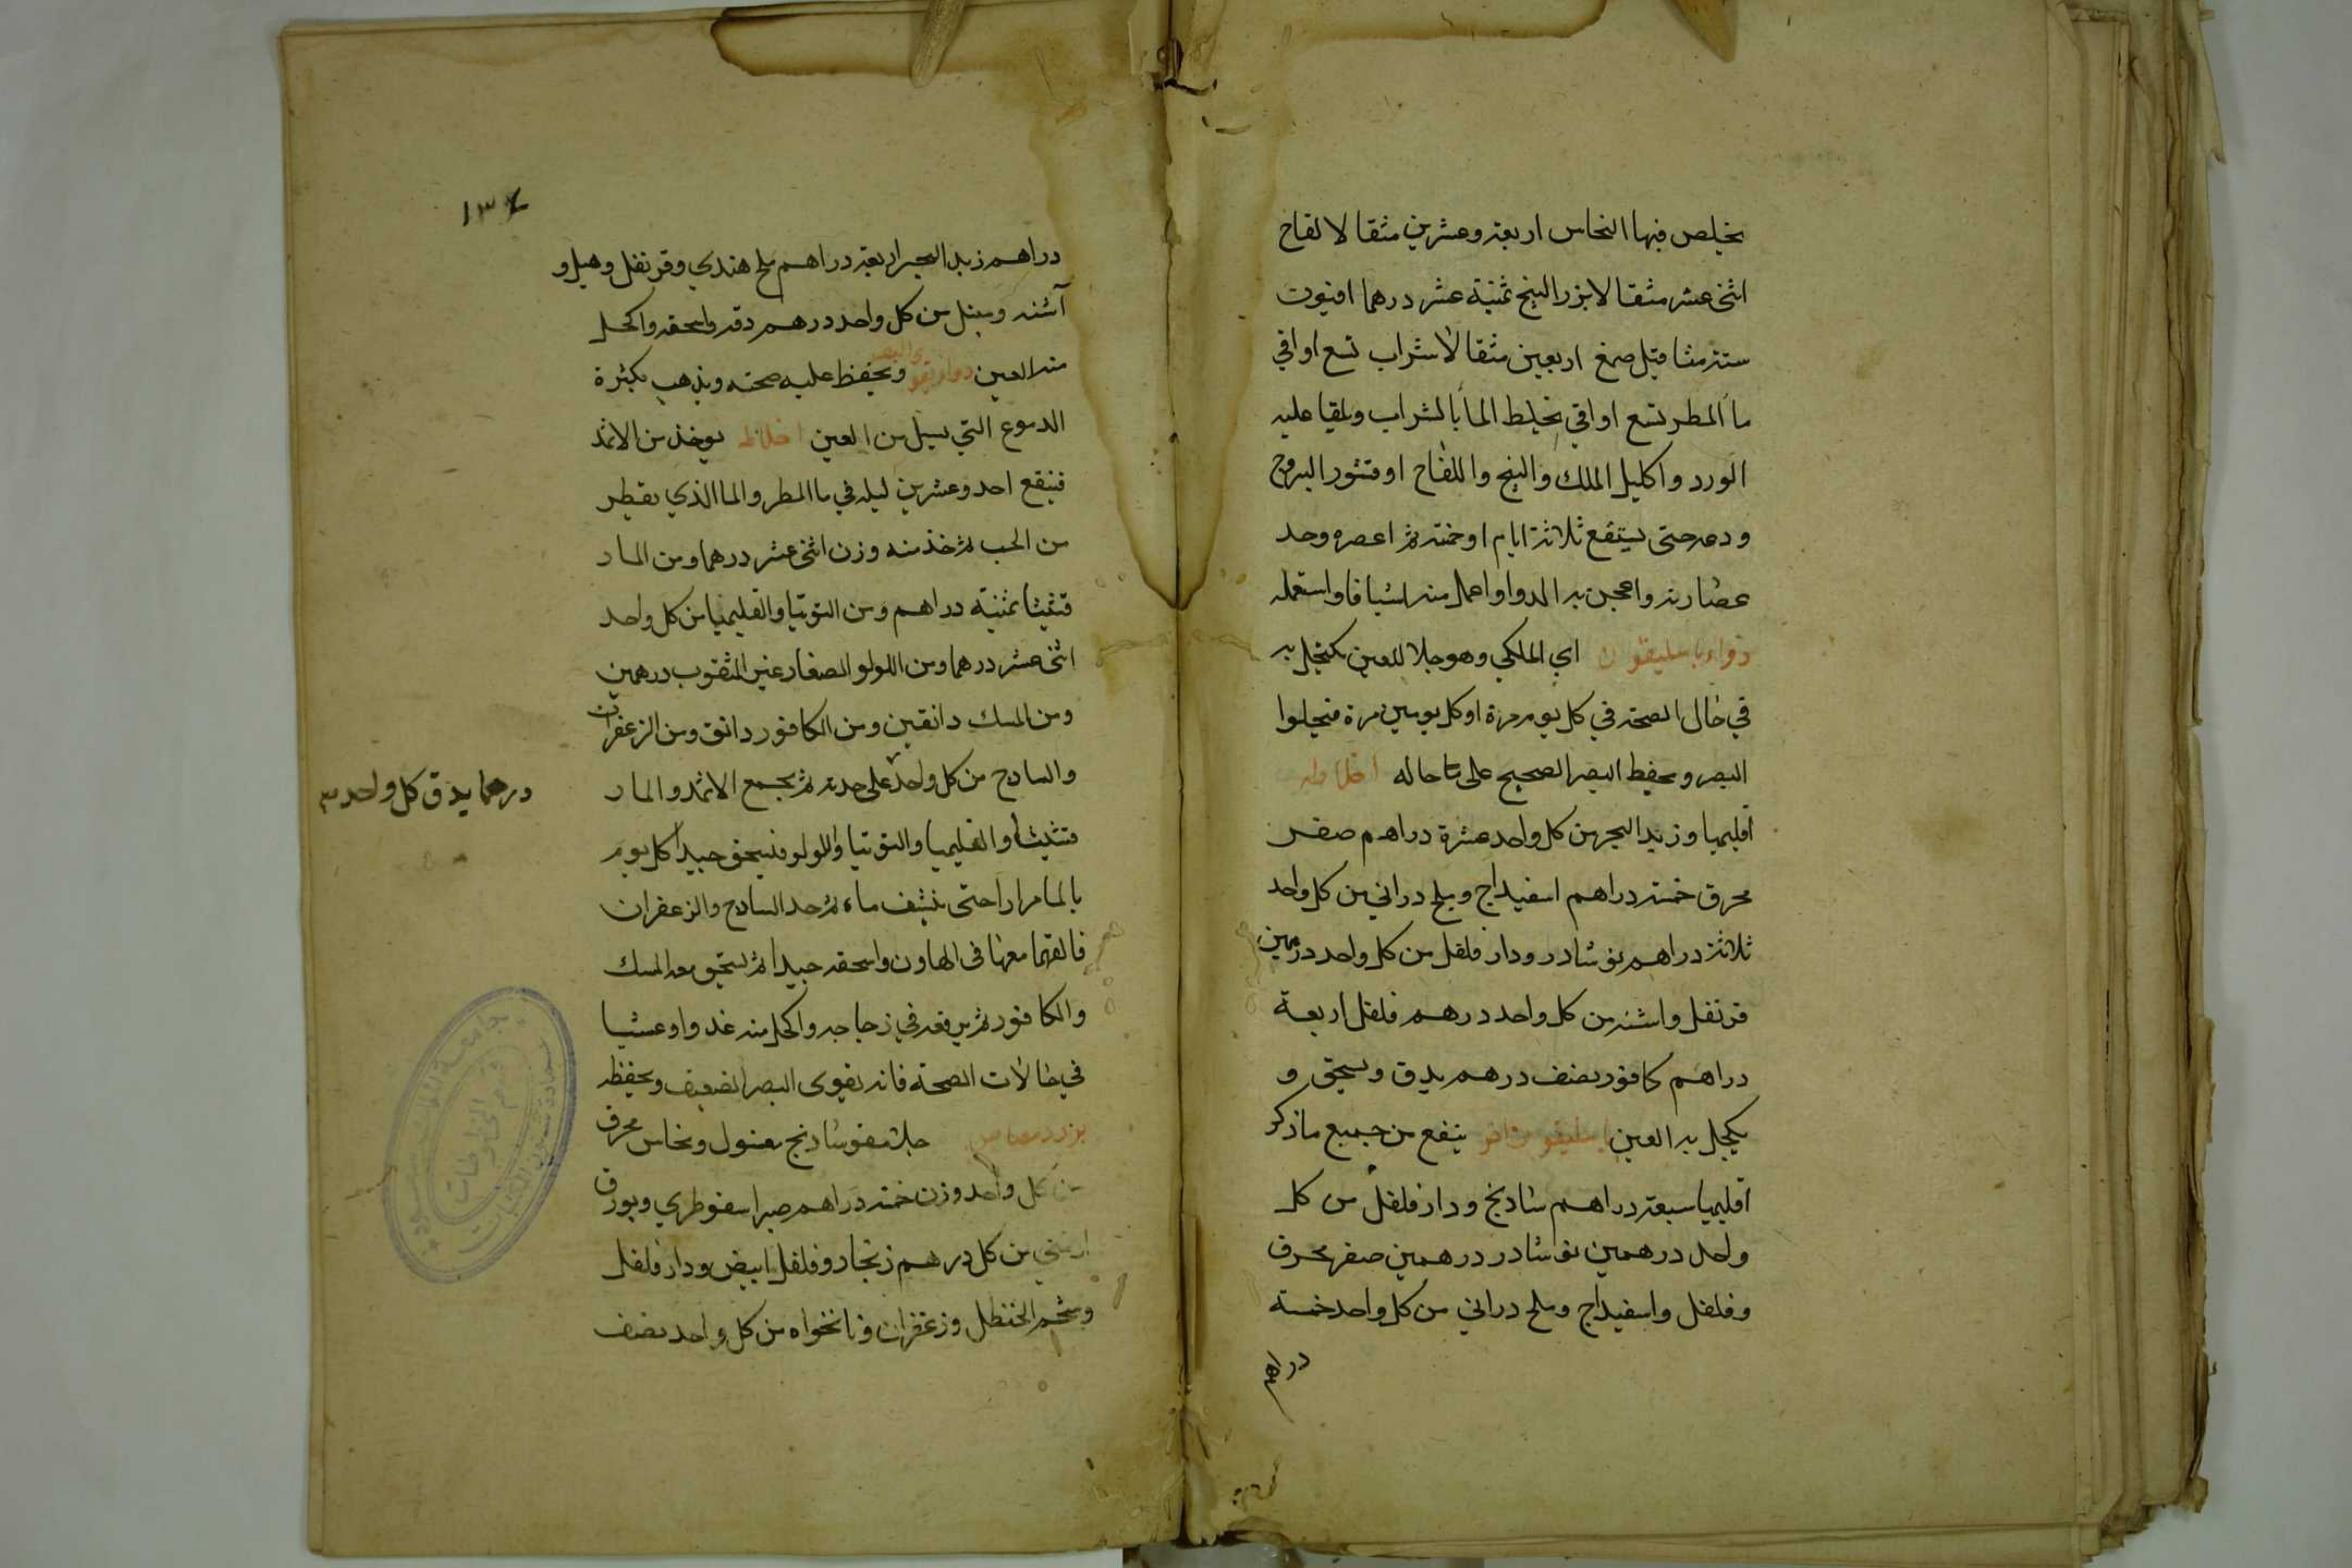 يخلص فيها النحاس اربعة وعشرين مثقالا لقاح
اثنى عشر مثقالا بزر البنج ثمنية عشر درهما افيون
ستة مثاقيل صمغ اربعين مثقالا شراب تسع اواقي
ماء المطر تسع اواقي يخلط الماء بالشراب ويلقا عليه
الورد واكليل الملك والبنج واللفاح او قشور اليبروح
ودعه حتى يستنقع ثلاثة ايام او خمسة ثم اعصره وخذ
عصارته واعجن به الدوا واعمل منه اشيافا واستعمله
دواء باسليقون اي الملكي وهو جلا للعين يكتحل به
في حال الصحة في كل يوم مرة او كل يومين مرة فيجلوا
البصر ويحفظ البصر الصحيح على حاله اخلاطه
اقليميا وزبد البحر من كل واحد عشرة دراهم صفر
محرق خمسة دراهم اسفيداج وملح دراني من كل واحد
ثلاثة دراهم نوشادر ودار فلفل من كل واحد درهمين
قرنفل واشنه من كل واحد درهم فلفل اربعة
دراهم كافور نصف درهم يدق ويسحق و
يكحل به العين باسليقون اخر ينفع من جميع ما ذكر
اقليميا سبعة دراهم شادنج ودار فلفل من كل
واحد درهمين نوشادر درهمين صفر محرق
وفلفل واسفيداج وملح دراني من كل واحد خمسة
دراهم
١٣٤
دراهم زبد البحر اربعة دراهم ملح هندي وقرنفل وهيل و
آشنه وسنبل من كل واحد درهم دقه واسحقه واكحل
منه العين دواء يقوي البصر ويحفظ عليه صحته ويذهب بكثرة
الدموع التي تسيل من العين اخلاطه يوخذ من الاثمد
فينقع احد وعشرين ليله في ماء المطر والما الذي يقطر
من الحب ثم خذ منه وزن اثنى عشر درهما ومن المار
قشيثا ثمنية دراهم ومن التوتيا والقليميا من كل واحد
اثنى عشر درهما ومن اللولو الصغار غير المثقوب درهمين
ومن المسك دانقين ومن الكافور دانق ومن الزعفران
والسادج من كل واحد على حدته ثم يجمع الاثمد والمار
درهما يدق كل واحد
قشيثا والقليميا والتوتيا واللولو فيسحق جيدا كل يوم
بالما مرارا حتى ينشف ماء ثم خذ السادج والزعفران
فالقهما معها في الهاون واسحقه جيدا ثم يسحق معه المسك
والكافور ثم يرفعه في زجاجه واكحل منه غدوا وعشيا
في حالات الصحة فانه يقوى البصر الضعيف ويحفظه
شادنج مغسول ونحاس محرق
من كل واحد وزن خمسة دراهم صبر اسقوطري وبورق
ارمني من كل درهم زنجار وفلفل ابيض ودار فلفل
وشحم الحنظل وزعفران ونانخواه من كل واحد نصف